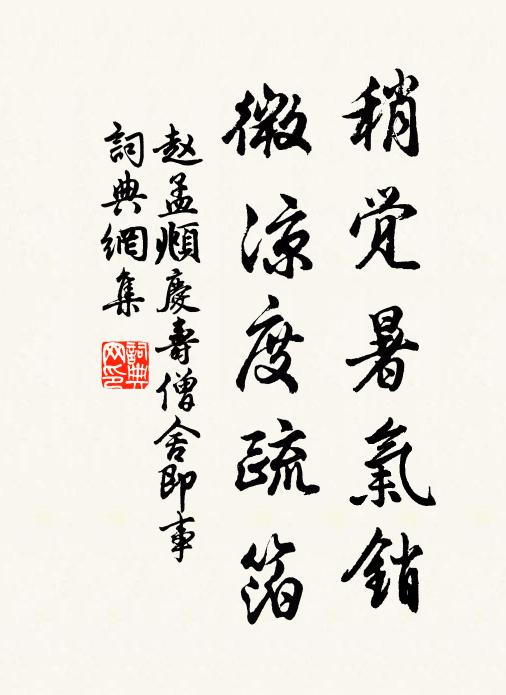 稍觉暑氣銷
微凉度疏箔
赵孟頫慶壽僧舍即事
詞典網集
詞典网印